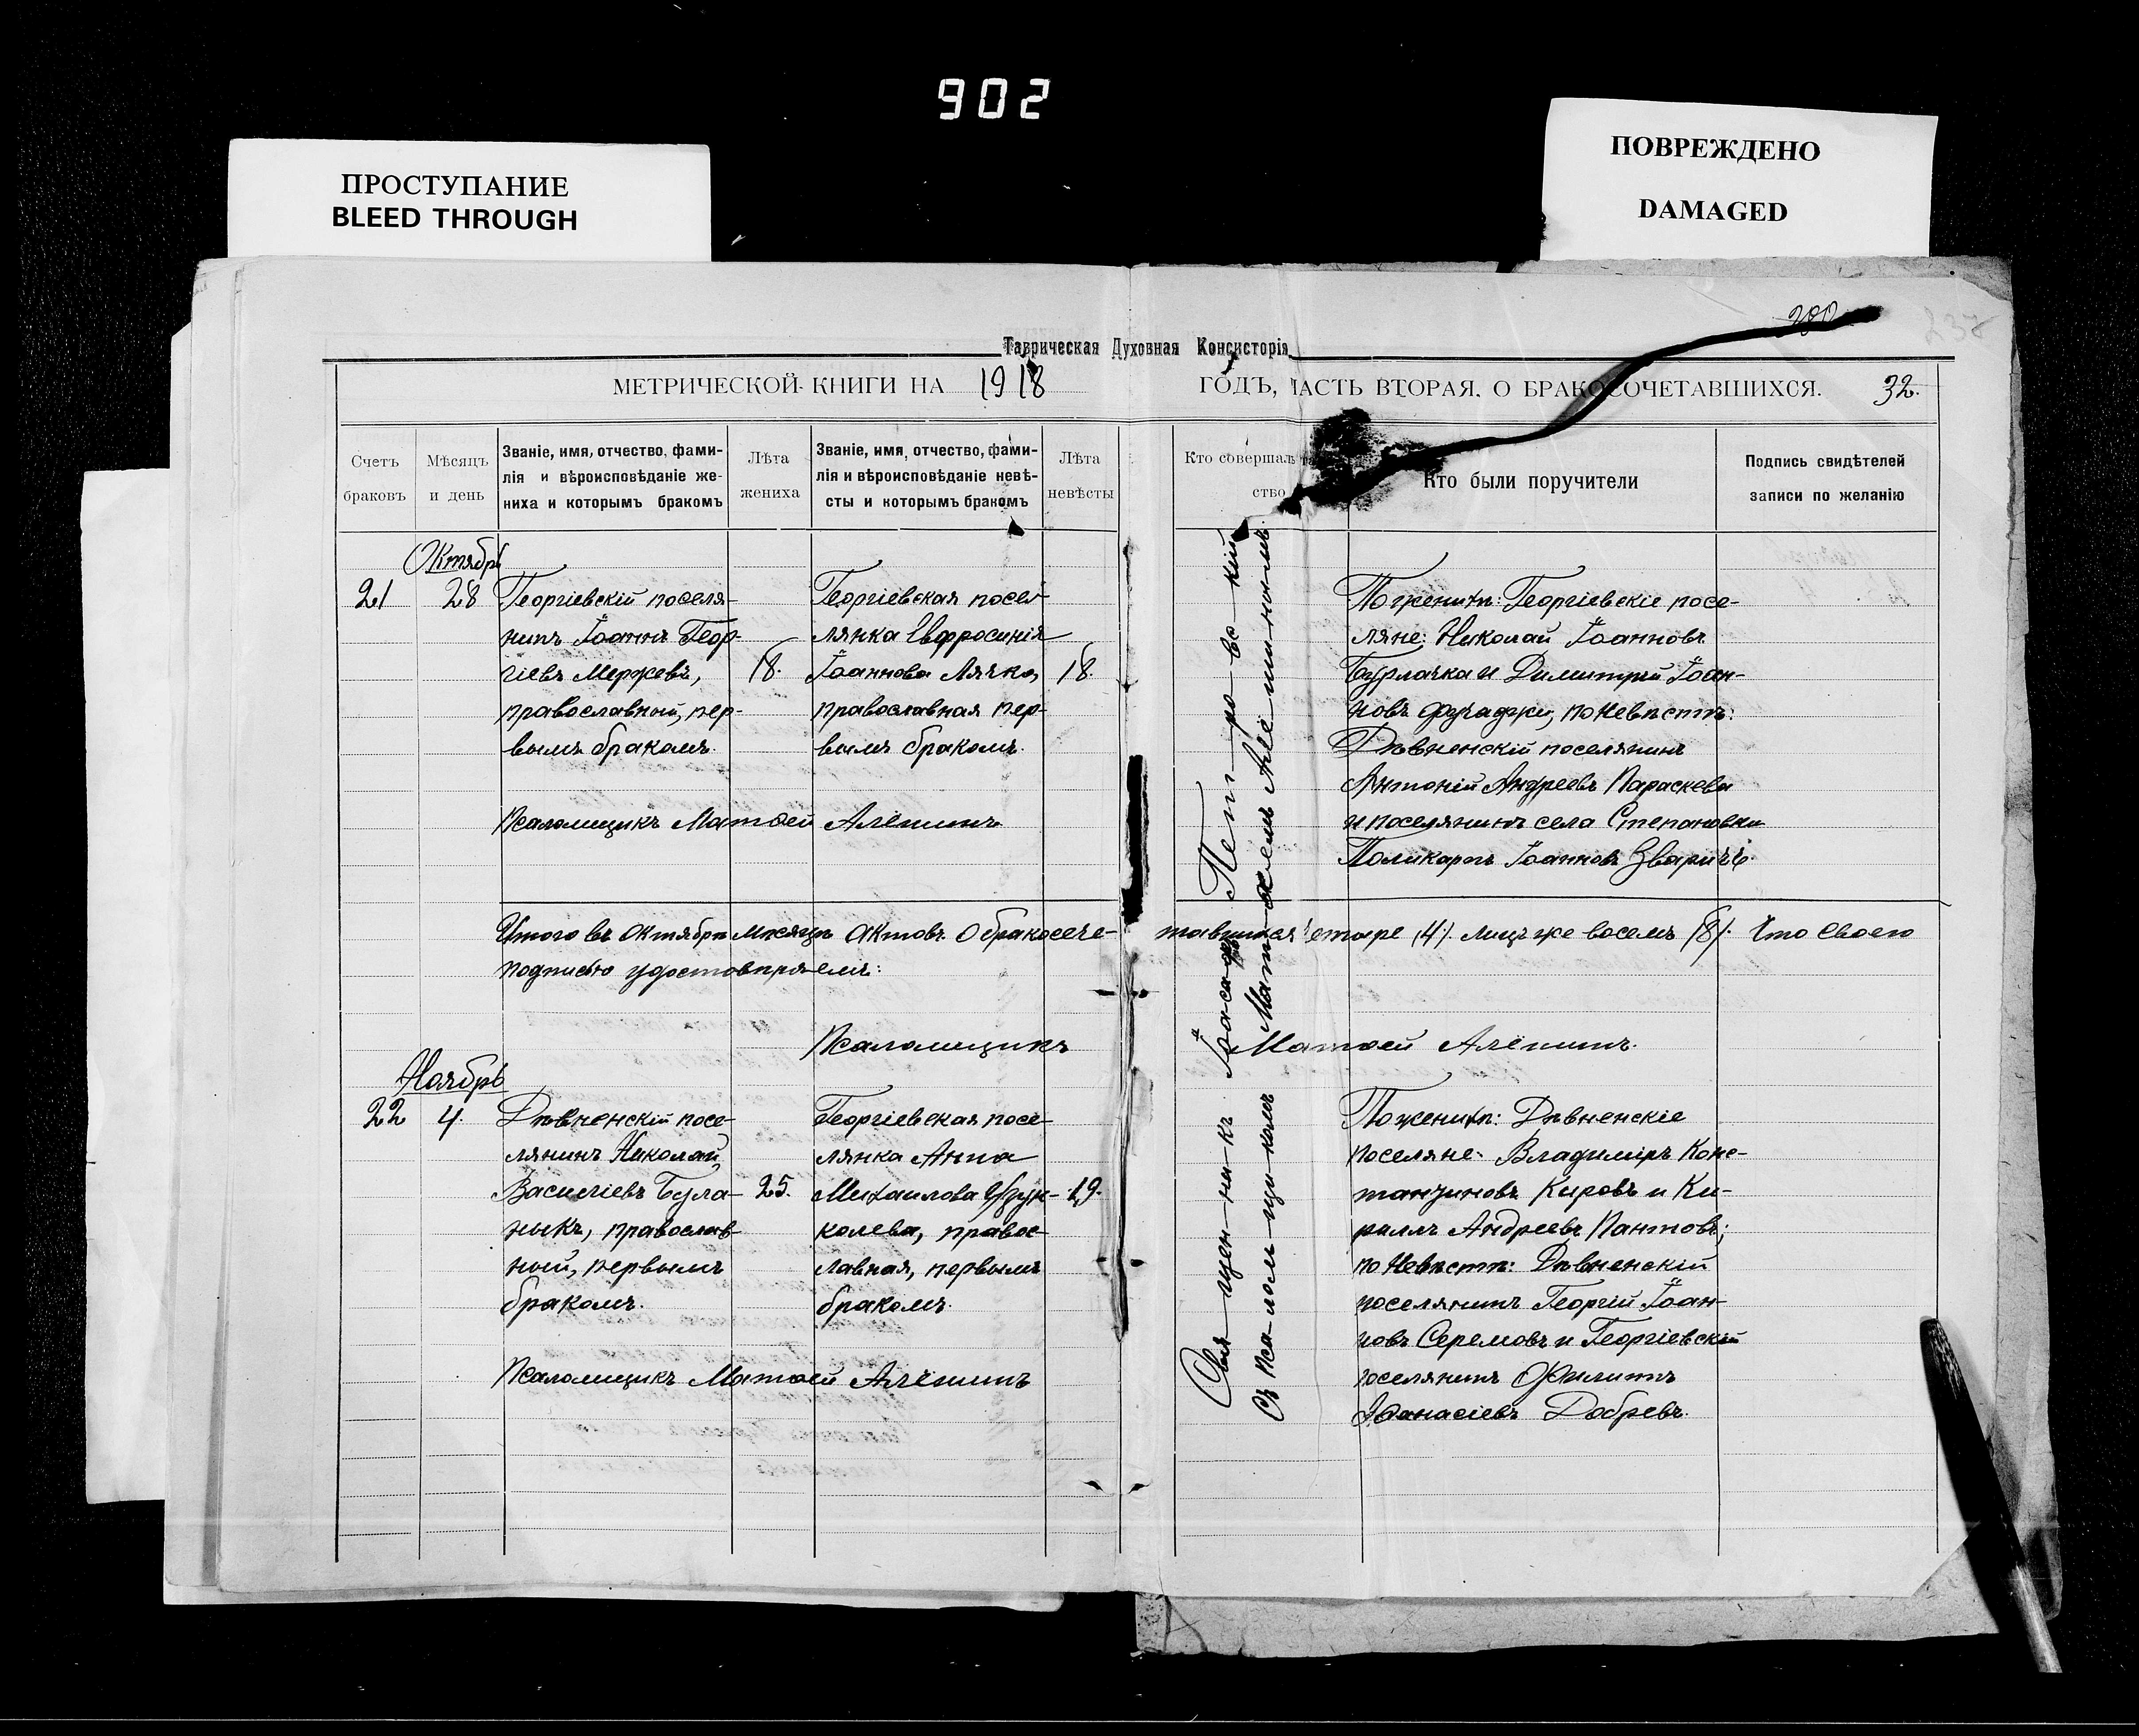 902
ПРОСТУПАНИЕ
BLEED THROUGH
ПОВРЕЖДЕНО
DAMAGED
Таврическая Духовная Консисторія
МЕТРИЧЕСКОЙ КНИГИ НА 1918 ГОДЪ, ЧАСТЬ ВТОРАЯ, О БРАКОСОЧЕТАВШИХСЯ. 32.
Счетъ
браковъ
Мѣсяцъ
и день
Званіе, имя, отчество, фами-
лія и вѣроисповѣданіе же-
ниха и которымъ бракомъ
Лѣта
жениха
Званіе, имя, отчество, фами-
лія и вѣроисповѣданіе невѣ-
сты и которымъ бракомъ
Лѣта
невѣсты
Кто совершалъ
ство
Кто были поручители
Подпись свидѣтелей
записи по желанію
Октябрь
21
28
Георгіевскій поселя-
нинъ Іоаннъ Геор-
гіевъ Мержевъ,
православный, пер-
вымъ бракомъ.
18.
Георгіевская посе-
лянка Евфросинія
Іоаннова Лячка,
православная пер-
вымъ бракомъ.
18.
Псаломщикъ Матѳей Алёшинъ
По женихѣ: Георгіевскіе посе-
ляне: Николай Іоанновъ
Бурлачка и Димитрій Іоан-
новъ Фучаджи, по невѣстѣ:
Дѣвненскій поселянинъ
Антоній Андреевъ Параскева
и поселянинъ села Степановки
Поликарпъ Іоанновъ Зваричъ.
Итого въ Октябрѣ мѣсяцѣ актовъ о бракосоче- тавшихся четыре (4). лицъ же восемь (8). Что своею
подписью удостовѣряемъ:
Псаломщикъ Матѳей Алёшинъ.
Священникъ Іоасафъ Петровскій
съ псаломщикомъ Матѳеемъ Алёшинымъ.
Ноябрь
22
4.
Дѣвненскій посе-
лянинъ Николай
Василіевъ Була-
ныкъ, православ-
ный, первымъ
бракомъ.
25.
Георгіевская посе-
лянка Анна
Михаилова
колева, правос-
лавная, первымъ
бракомъ.
19.
Псаломщикъ Матѳей Алёшинъ
По женихѣ: Дѣвненскіе
поселяне: Владиміръ Конс-
тантиновъ Кировъ и Ки-
риллъ Андреевъ Пантовъ;
по невѣстѣ: Дѣвненскій
поселянинъ Георгій Іоан-
новъ Серемовъ и Георгіевскій
поселянинъ Филиппъ
Аѳанасіевъ Добревъ.